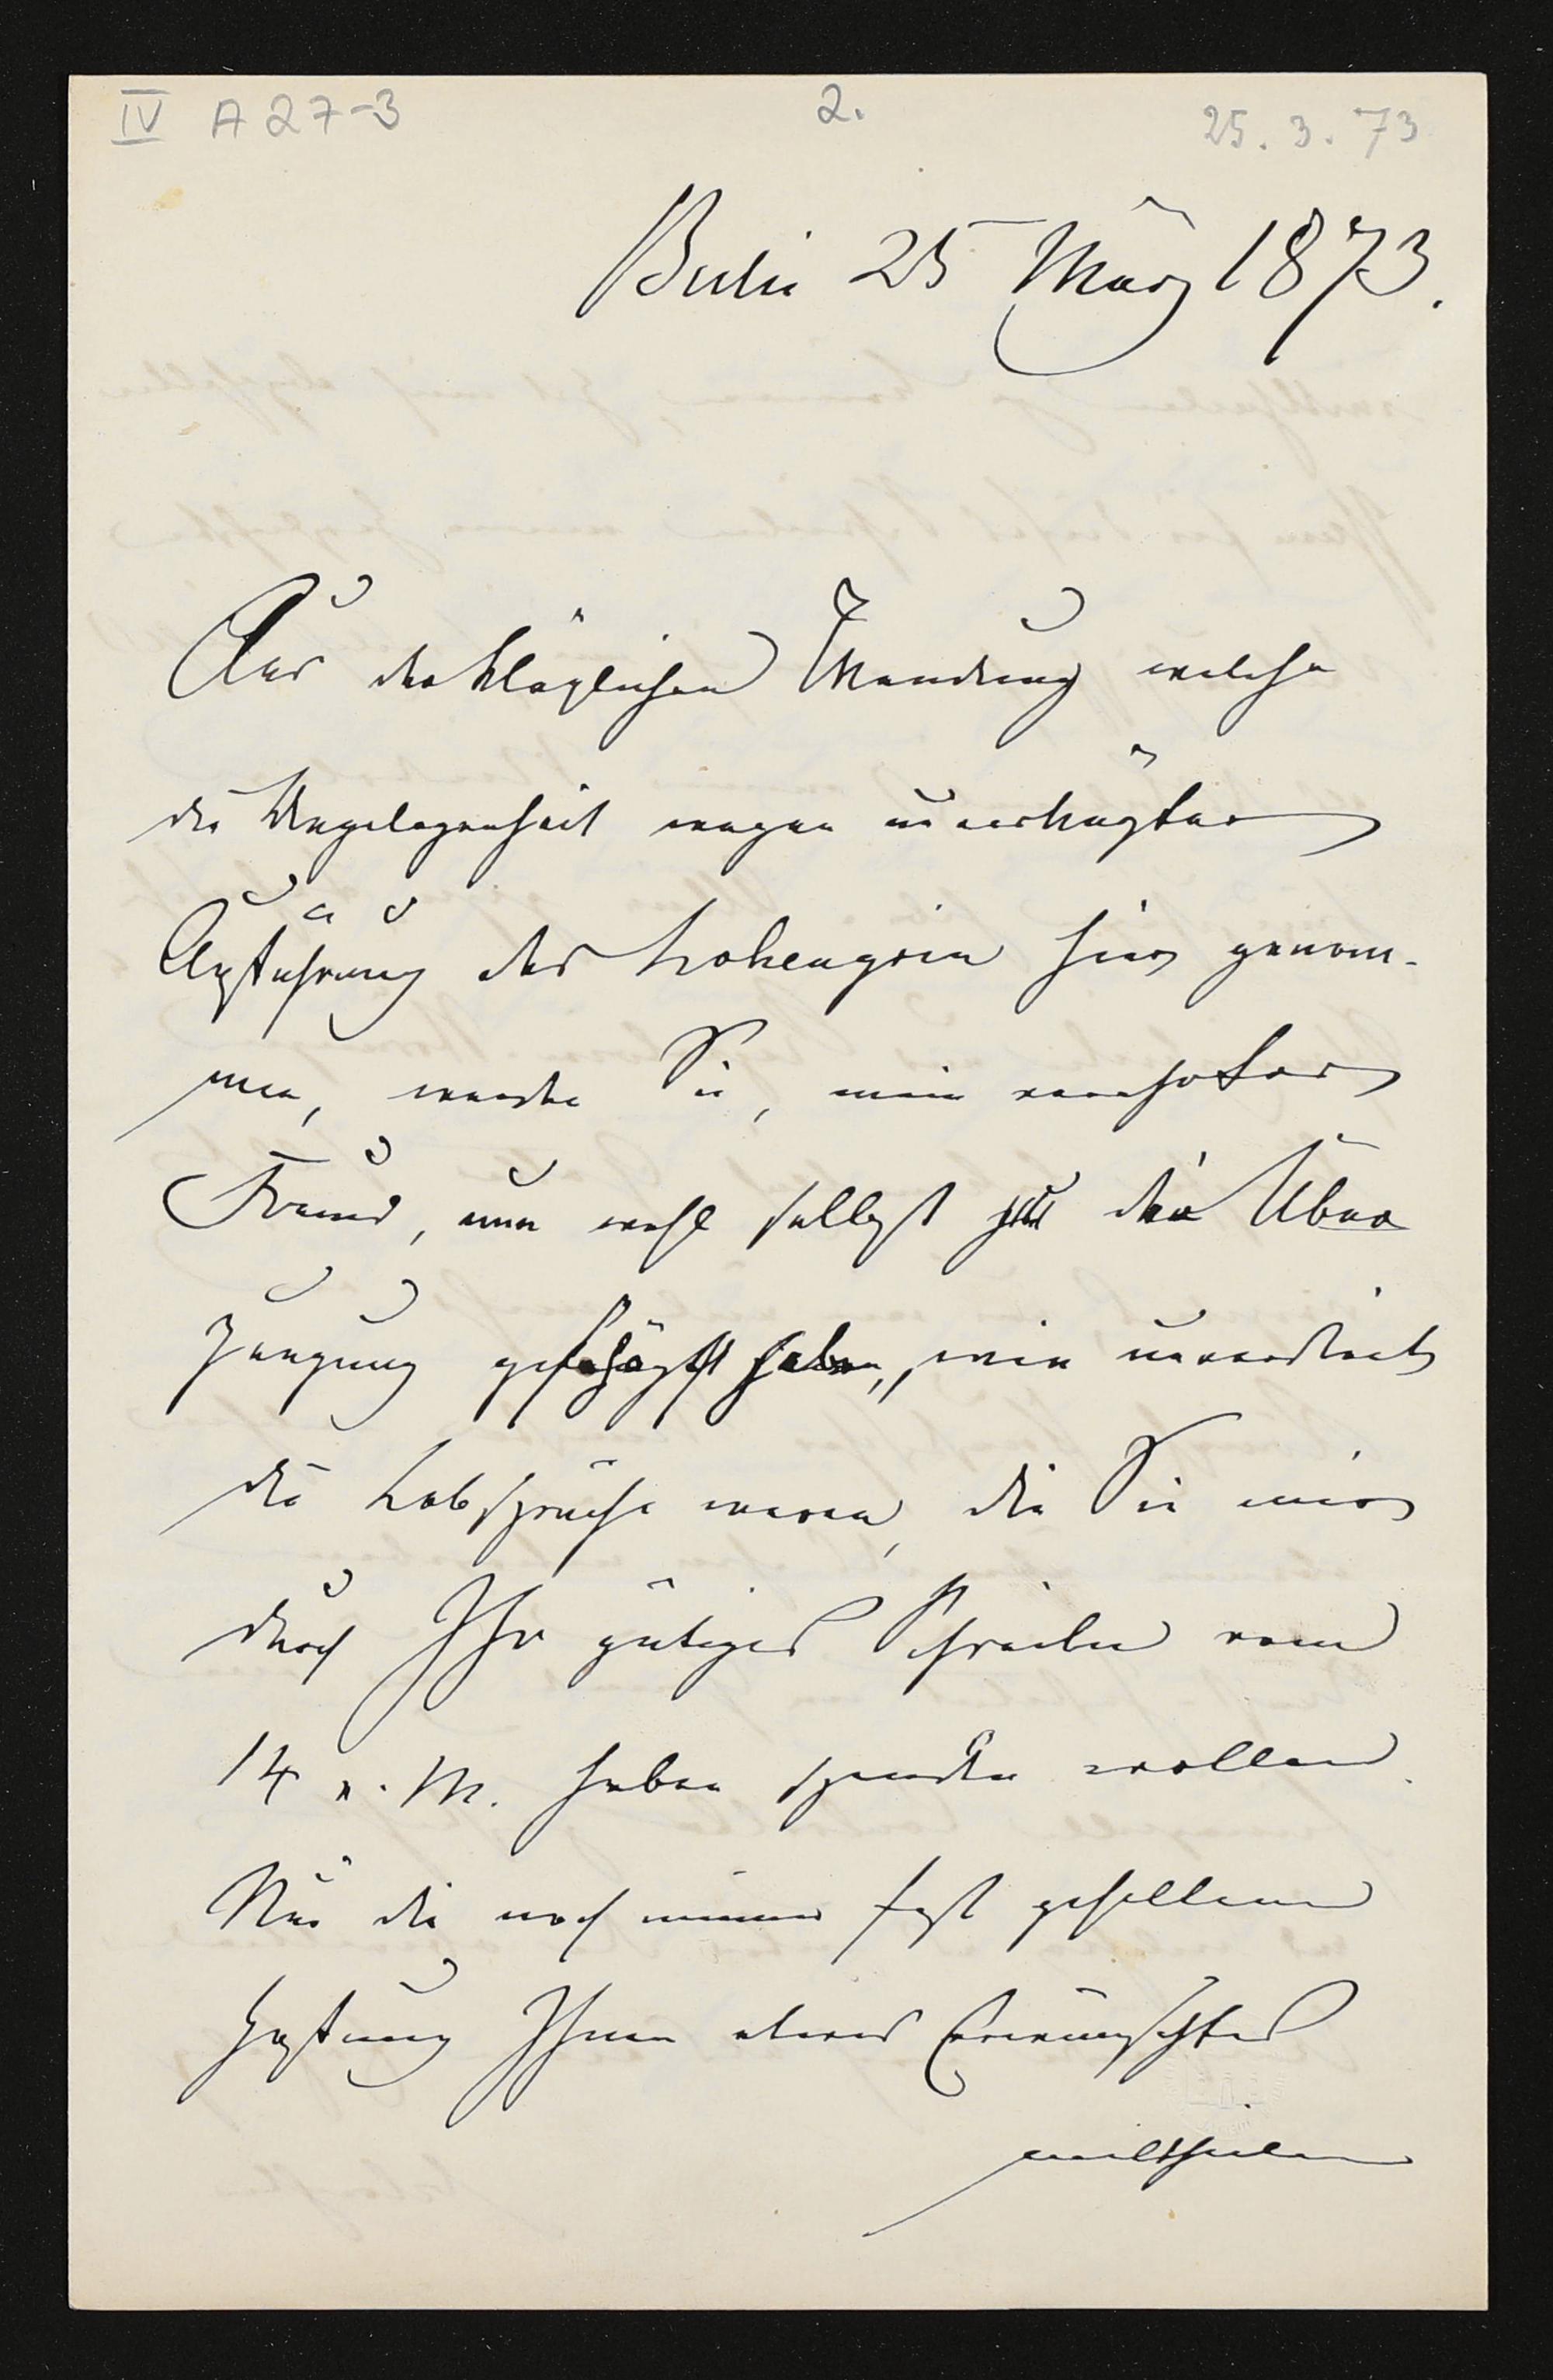 IV A 27-3 2. 25.3.73
Berlin 25 März 1873.
Aus der kläglichen Wendung welche
die Angelegenheit wegen unverkürzter
Aufführung des Lohengrin hier genom-
men, werden Sie, mein verehrter
Freund, nun wohl selbst die Über
zeugung geschöpft haben, wie unverdient
die Lobsprüche waren, die Sie mir
durch Ihr gütiges Schreiben vom
14 v. M. haben spenden wollen.
Nur die noch immer fest gehaltene
Hoffnung Ihnen etwas Erwünschtes
mittheilen